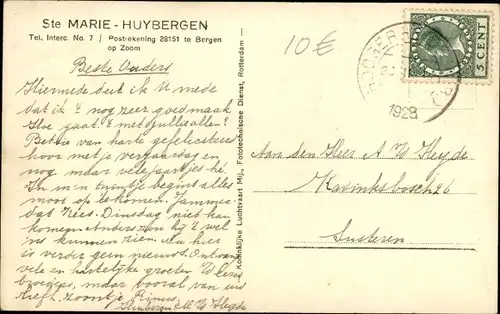 Ste MARIE - HUYBERGEN
Tel, Interc. No. 7 / Postrekening 28151 te Bergen
op Zoom
10€
Beste Ouders
Hiermede deel ik U mede
dat ik 't nog zeer goed maak
Hoe gaat 't met jullie allen?
Bettie van harte gefeliciteerd
hoor met je verjaardag en
nog maar vele jaartjes hé.
In m'n tuintje begint alles
mooi op te komen. Jammer
dat Kees Dinsdag niet kan
komen Anders zou hij 't wel
ins kunnen zien. Nu hier
is verder geen nieuws. Ontvang
vele en hartelijke groeten
maar vooral van uw
liefh. zoontje Rinus
Huibergen
Koninklijke Luchtvaart Mij, Fototechnische Dienst, Rotterdam
5 CENT
1928
Aan den Heer A v d Heyde
26